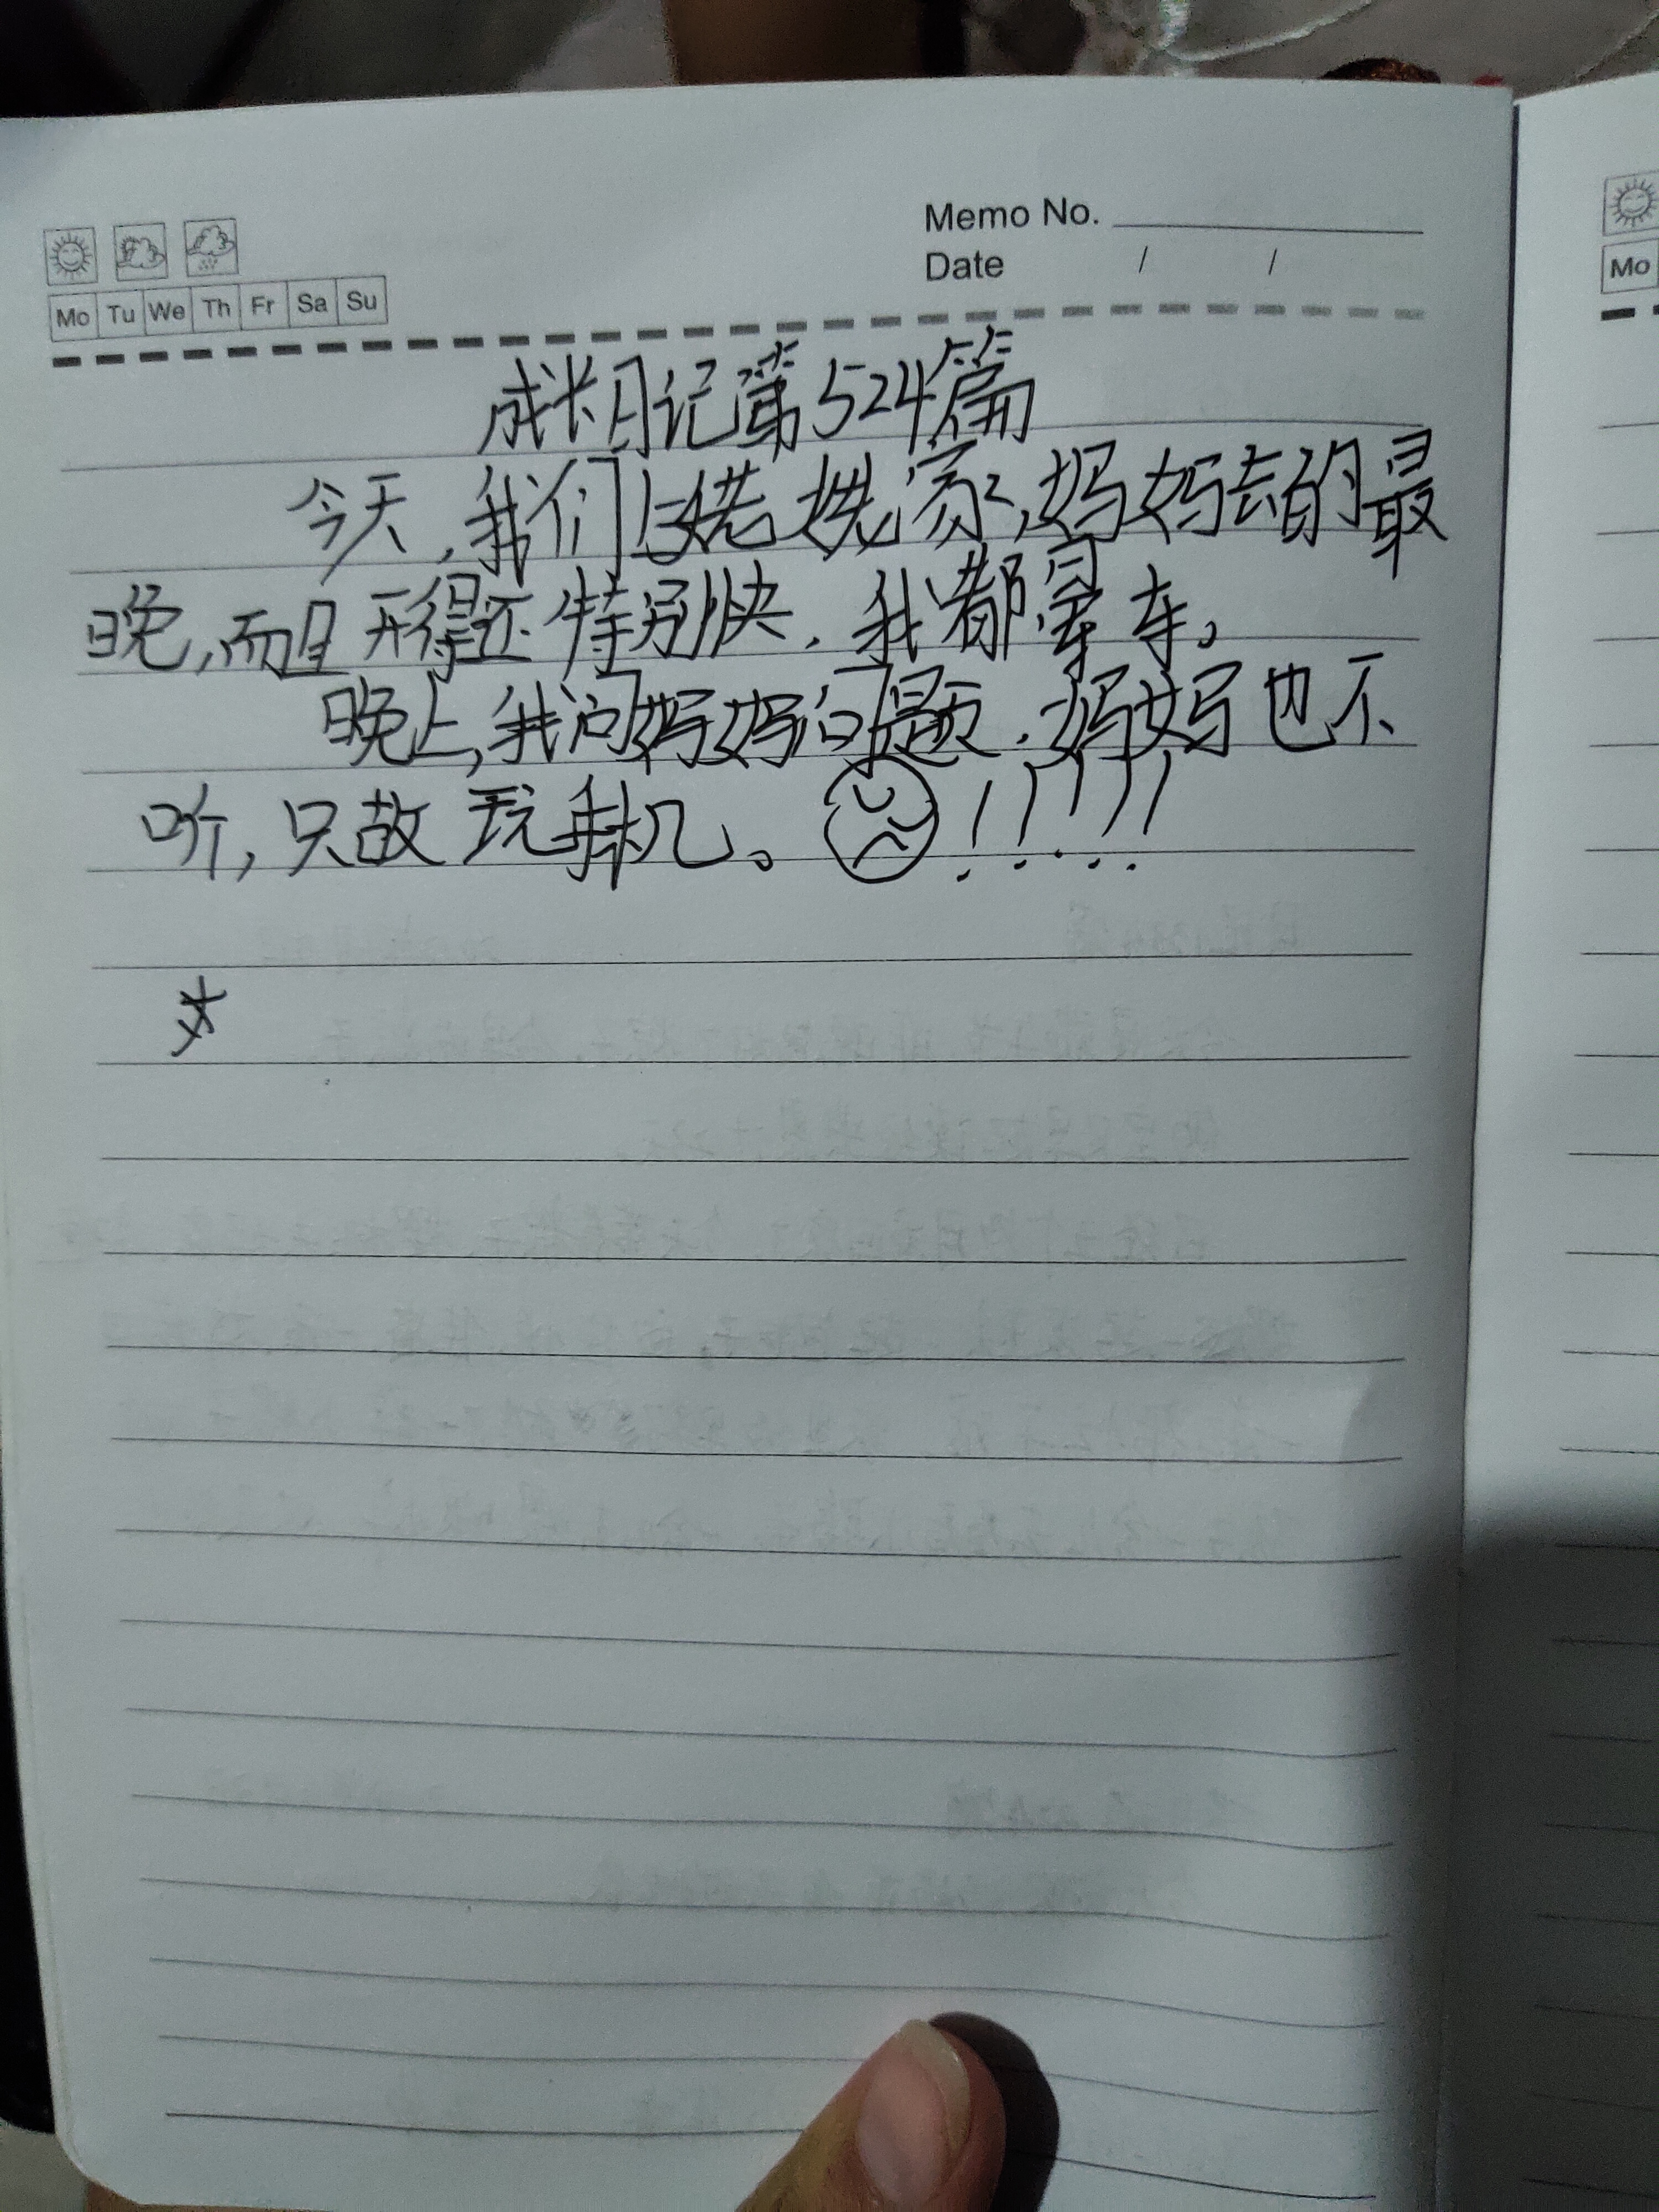 Memo No.
Date / /
Mo Tu We Th Fr Sa Su
Mo
成长日记第524篇
今天,我们去姥姥家,妈妈去的最
晚,而且开得还特别快,我都晕车。
晚上,我问妈妈问题,妈妈也不
听,只故玩手机。!!!!!